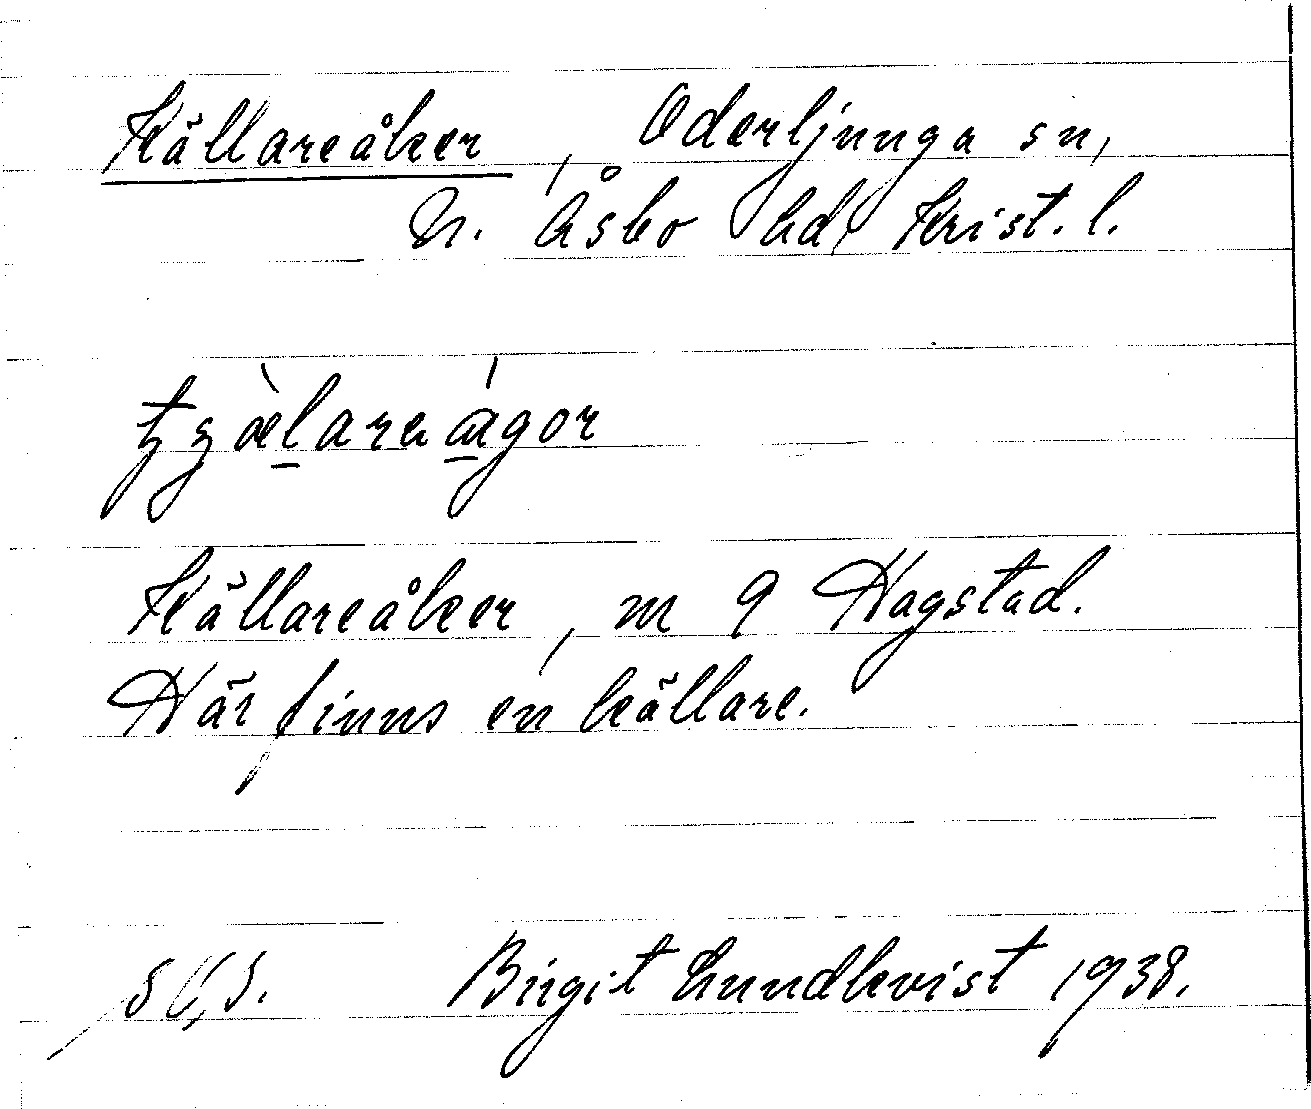 Källareåker, Oderljunga sn,
N. Åsbo hd, Krist. l.
Källareåker, m 9 Hagstad.
Här finns en källare.
Birgit Lundkvist 1938.